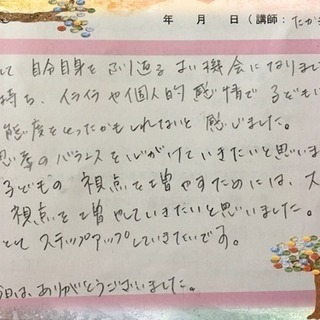 年 月 日（講師：たかき
して 自分自身を ふり返る よい機会になりまし
持ち、イライラや個人的感情で子どもに
態度をとったかもしれないと 感じました。
思考のバランスを心がけていきたいと思いま
子どもの 視点を増やすためには、大
視点を増やしていきたいと思いました。
としてステップアップしていきたいです。
今日は、ありがとうございました。